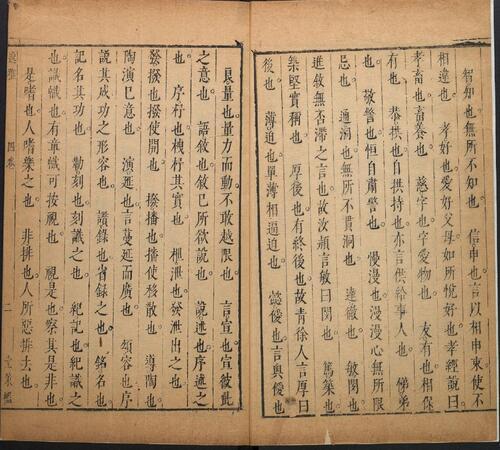 智知也無所不知也　信申也言以相申束使不
相違也　孝好也愛好父母如所悅好也孝經說曰
孝畜也畜養也　慈字也字愛物也　友有也相保
有也　恭拱也自拱持也亦言供給事人也　悌弟
也　敬警也恒自肅警也　慢漫也漫漫心無所限
忌也　通洞也無所不貫洞也　達徹也　敏閔也
進敘無否滯之言也故汝潁言敏曰閔也　篤築也
築堅實稱也　厚後也有終後也故青徐人言厚曰
後也　薄迫也單薄相逼迫也　懿僾也言奧僾也
良量也量力而動不敢越限也　言宣也宣彼此
之意也　語敘也敘巳所欲說也　說述也序述之
也　序抒也拽抒其實也　抴泄也發泄出之也
發撥也撥使開也　撥播也播使移散也　導陶也
陶演巳意也　演延也言蔓延而廣也　頌容也序
說其成功之形容也　讚錄也省錄之也　銘名也
記名其功也　勒刻也刻識之也　紀記也紀識之
也　識幟也有章幟可按視也　視是也察其是非也
是嗜也人嗜樂之也　非排也人所惡排去也
逸雅　四卷　二　堂策檻